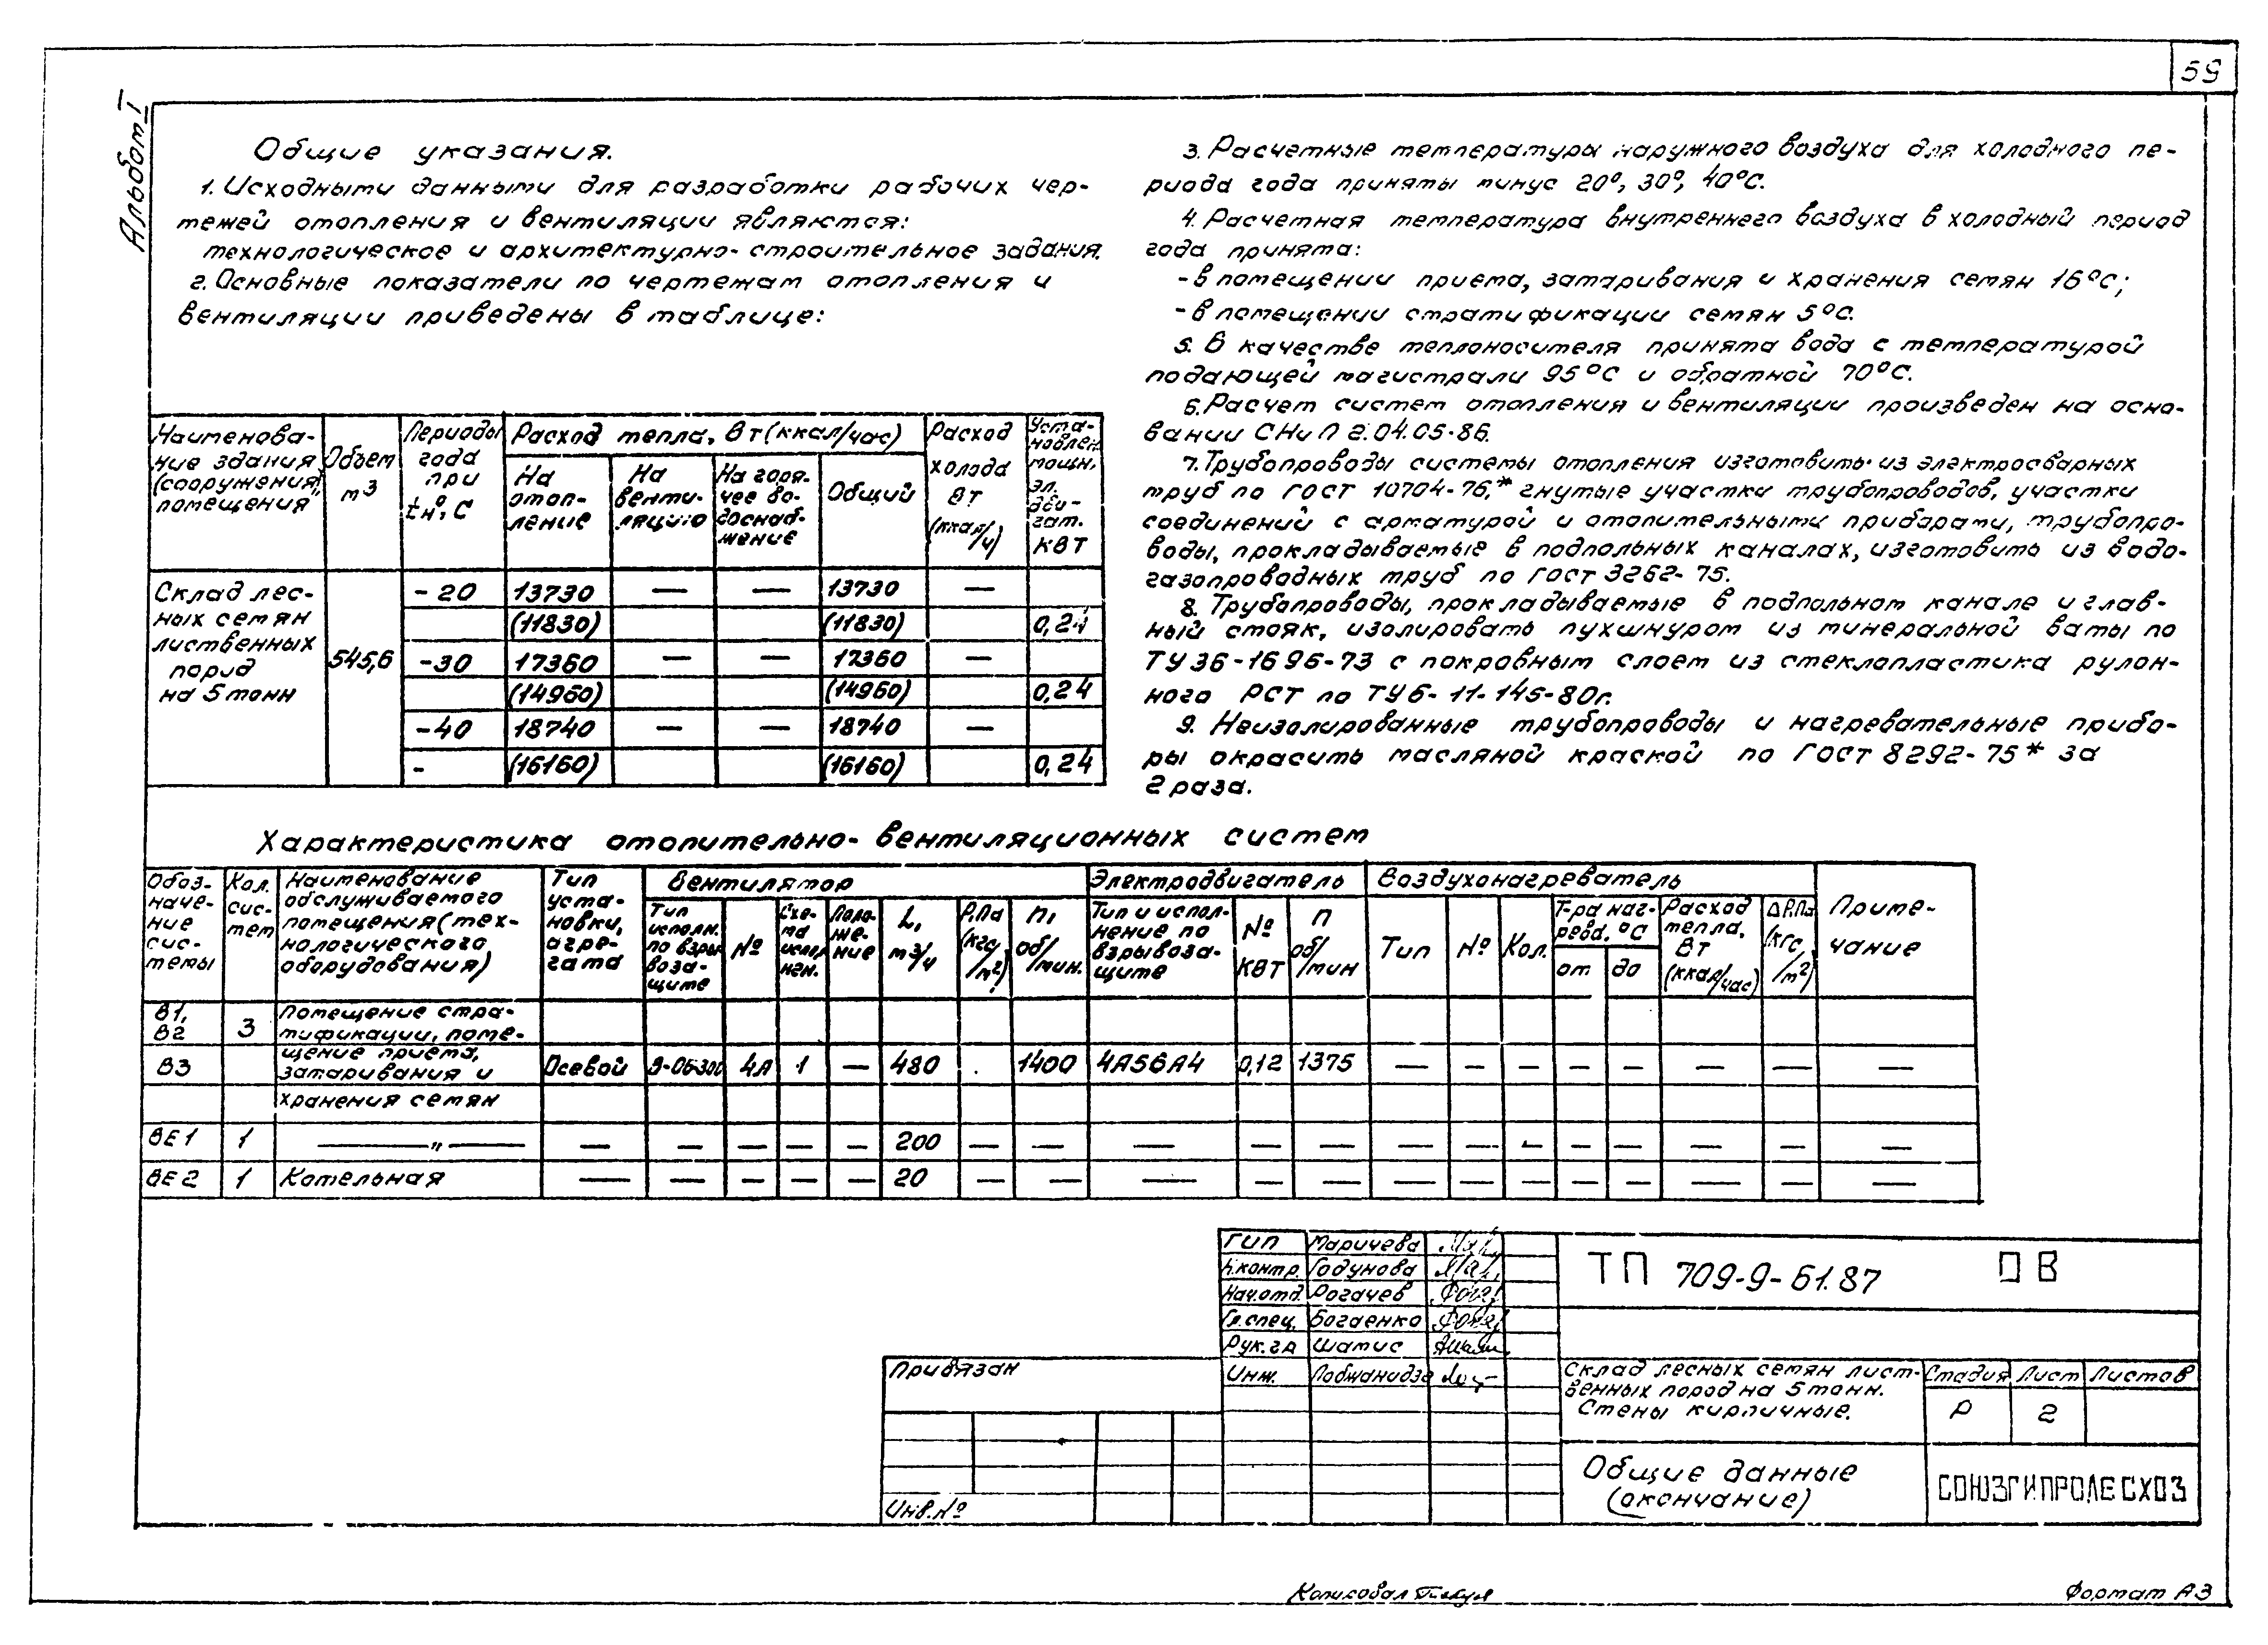 59
Альбом I
Общие указания.
1. Исходными данными для разработки рабочих чер-
тежей отопления и вентиляции являются:
технологическое и архитектурно-строительное задания.
2. Основные показатели по чертежам отопления и
вентиляции приведены в таблице:
3. Расчетные температуры наружного воздуха для холодного пе-
риода года приняты минус 20°, 30°, 40°С.
4. Расчетная температура внутреннего воздуха в холодный период
года принята:
- в помещении приема, затаривания и хранения семян 16°С;
- в помещении стратификации семян 5°С.
5. В качестве теплоносителя принята вода с температурой
подающей магистрали 95°С и обратной 70°С.
6. Расчет систем отопления и вентиляции произведен на осно-
вании СНиП 2.04.05-86.
7. Трубопроводы системы отопления изготовить из электросварных
труб по ГОСТ 10704-76,* гнутые участки трубопроводов, участки
соединений с арматурой и отопительными приборами, трубопро-
воды, прокладываемые в подпольных каналах, изготовить из водо-
газопроводных труб по ГОСТ 3262-75.
8. Трубопроводы, прокладываемые в подпольном канале и глав-
ный стояк, изолировать пухшнуром из минеральной ваты по
ТУ 36-1696-73 с покровным слоем из стеклопластика рулон-
ного РСТ по ТУ6-11-145-80г.
9. Неизолированные трубопроводы и нагревательные прибо-
ры окрасить масляной краской по ГОСТ 8292-75* за
2 раза.
Наименова-
ние здания
(сооружения),
помещения
Объем
м3
Периоды
года
при
tн°, С
Расход тепла, Вт (ккал/час)
На
отоп-
ление
На
венти-
ляцию
На горя-
чее во-
доснаб-
жение
Общий
Расход
холода
Вт
(ккал/ч)
Уста-
новлен.
мощн.
эл.
дви-
гат.
кВт
Склад лес-
ных семян
лиственных
пород
на 5 тонн
545,6
-20 13730 — — 13730 —
(11830) (11830) 0,24
-30 17360 — — 17360 —
(14960) (14960) 0,24
-40 18740 — — 18740 —
- (16160) (16160) 0,24
Характеристика отопительно-вентиляционных систем
Обоз-
наче-
ние
сис-
темы
Кол.
сис-
тем
Наименование
обслуживаемого
помещения (тех-
нологического
оборудования)
Тип
уста-
новки,
агре-
гата
Вентилятор
Тип
исполн.
по взры
воза-
щите
№
Схе-
ма
испол
нен.
Поло-
же-
ние
L,
м3/ч
Р, Па
(кгс
/м2)
n,
об/
мин.
Электродвигатель
Тип и испол-
нение по
взрывоза-
щите
№
кВт
n
об/
мин
Воздухонагреватель
Тип
№
Кол.
Т-ра наг-
рева, °С
от
до
Расход
тепла,
Вт
(ккал/час)
ΔР, Па
(кгс
/м2)
Приме-
чание
В1,
В2
3
Помещение стра-
тификации, поме-
щение приема,
затаривания и
хранения семян
В3 Осевой В-06-300 4А 1 — 480 . 1400 4А56А4 0,12 1375 — — — — — — — —
ВЕ1 1 — „ — — — — — — 200 — — — — — — — — — — — — —
ВЕ2 1 Котельная — — — — — 20 — — — — — — — — — — — — —
ГИП Маричева
Н.контр. Годунова
Нач.отд. Рогачев
Гл.спец. Богаенко
Рук.гр Шатис
Инж. Лобжанидзе
ТП 709-9-61.87 ОВ
Склад лесных семян лист-
венных пород на 5 тонн.
Стены кирпичные.
Стадия Лист Листов
Р 2
Общие данные
(окончание)
СОЮЗГИПРОЛЕСХОЗ
Привязан
Инв.№
Копировал
Формат А3